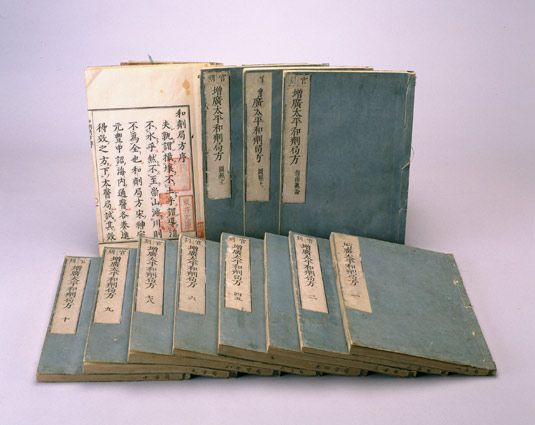 和劑局方序
夫孰謂壤不土孰謂
不水乎然不至崇山海川則
不爲金也和劑局方宋神宗
元豐中詔海內通醫各奏進
得效之方下太醫局試其效
官刻
增廣太平和劑局方
圖經上
增廣太平和劑局方
圖經下
官刻
增廣太平和劑局方
指南總論
局方
增廣太平和劑局方 十
官刻
增廣太平和劑局方 九
官刻
增廣太平和劑局方 七八
官刻
增廣太平和劑局方 六
官刻
增廣太平和劑局方 四五
官刻
增廣太平和劑局方 二
增廣太平和劑局方 一